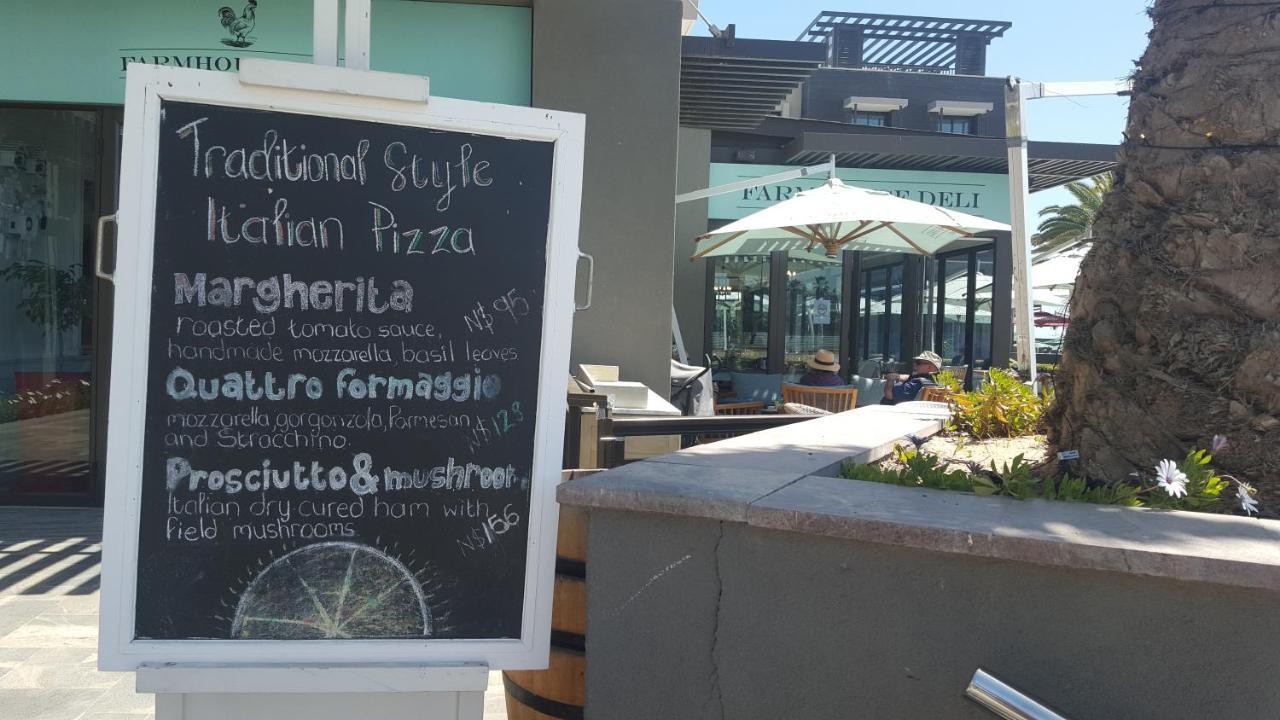 Traditional Style
Italian Pizza
Margherita
roasted tomato sauce,
handmade mozzarella, basil leaves
N$95
Quattro formaggio
mozzarella, gorgonzola, Parmesan
and Stracchino.
N$128
Prosciutto & mushroom
Italian dry-cured ham with
field mushrooms
N$156
DELI